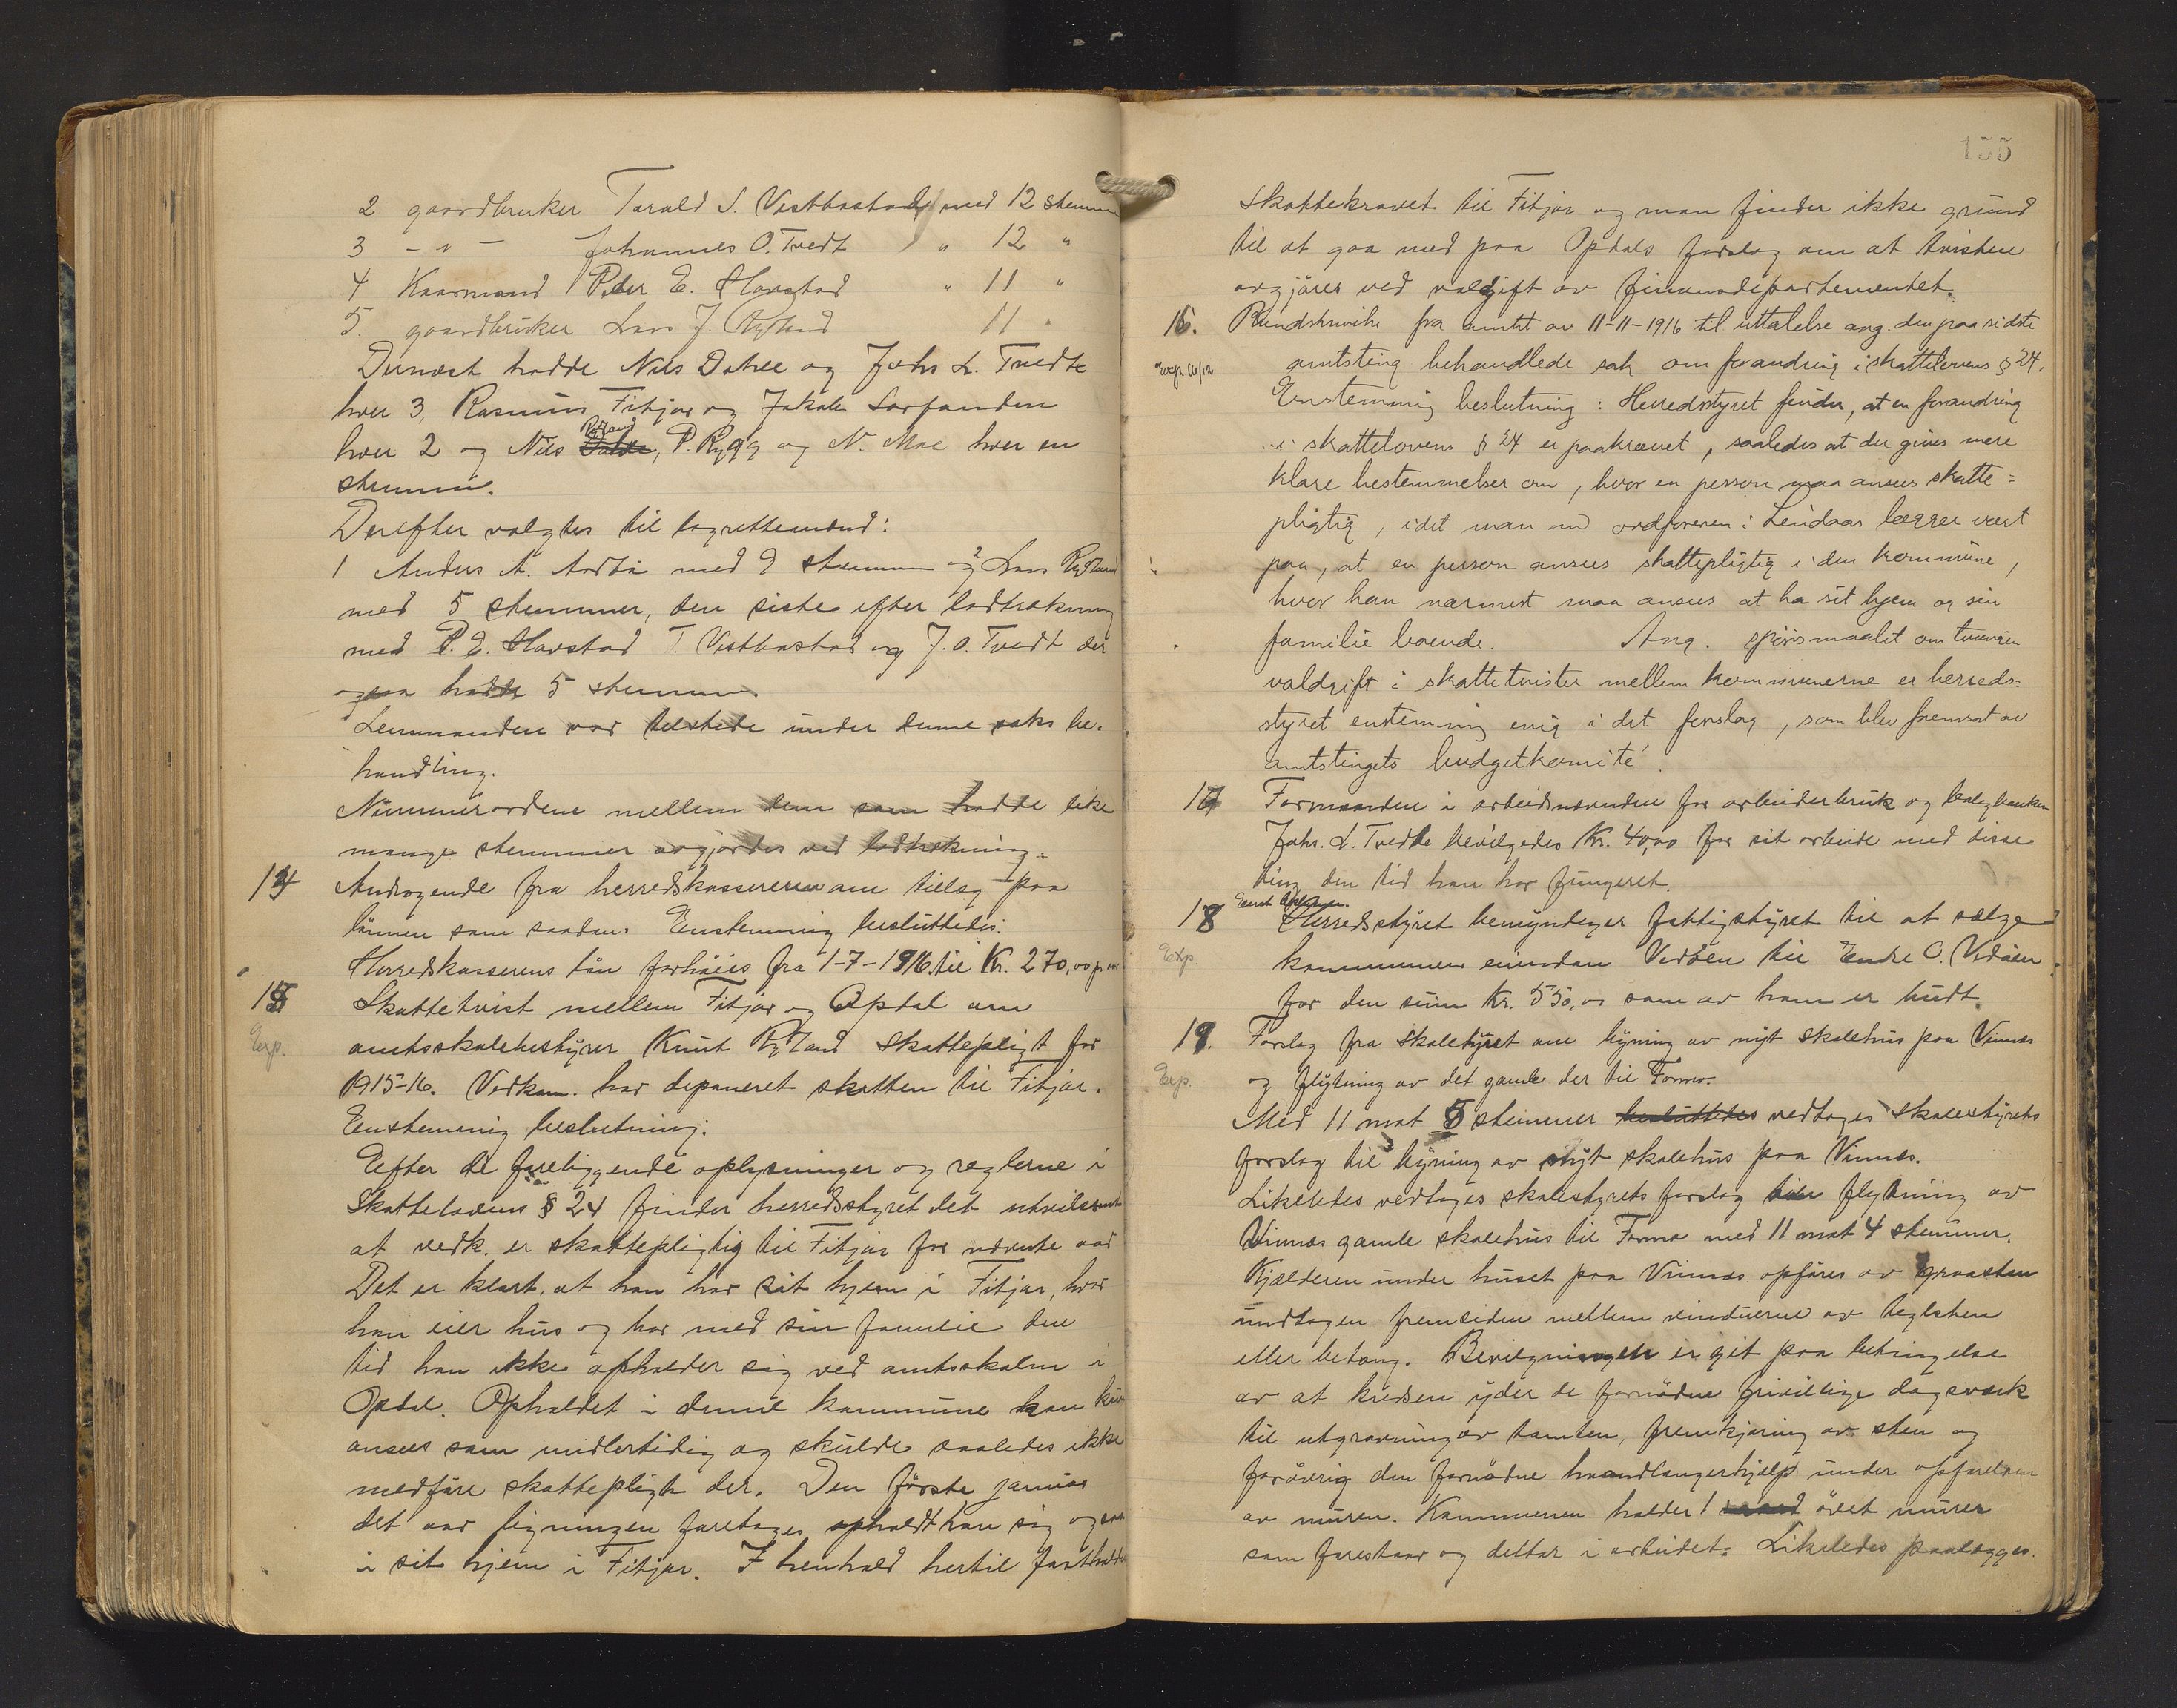 2 gaardbruker Tarald S. Vestbøstad med 12 stemmer
3 - " - Johannes O. Tvedt " 12 "
4 Kaarmand Peder E. Havstad " 11 "
5. gaardbruker Lars J. Rygland 11 "
Dernæst hadde Nils Dahle og Johs L. Tvedte
hver 3, Rasmus Fitjar og Jakob
hver 2 og Nils Rygland, P. Rygg og N. Moe hver en
stemme.
Derefter valgtes til lagrettemænd:
1 Anders A. med 9 stemmer og 2 Lars Rygland
med 5 stemmer, den siste efter lodtrækning
med P. E. Havstad T. Vestbøstad og J. O. Tvedt der
ogsaa hadde 5 stemmer
Lensmanden var tilstede under denne saks be-
handling.
Nummerordene mellem dem som hadde like
mange stemmer avgjordes ved lodtrækning.
14 Andragende fra herredskassereren om tillæg paa
lönnen som saadan. Enstemmig besluttedes:
Herredskasserens lön forhöies fra 1-7-1916 til Kr. 270,00 pr aar
15 Skattetvist mellem Fitjar og Opdal om
Exp. amtsskolebestyrer Knut Rygland skattepligt for
1915-16. Vedkom. har deponeret skatten til Fitjar.
Enstemmig beslutning:
Efter de foreliggende oplysninger og reglerne i
Skattelovens § 24 finder herredsstyret det utvilsomt
at vedk. er skattepligtig til Fitjar for nævnte aar
Det er klart, at han har sit hjem i Fitjar, hvor
han eier hus og bor med sin familie den
tid han ikke opholder sig ved amtsskolen i
Opdal. Opholdet i denne kommune kan kun
ansees som midlertidig og skulde saaledes ikke
medføre skattepligt der. Den første januar
det aar ligningen foretages opholdt han sig ogsaa
i sit hjem i Fitjar. I henhold hertil fastholdes
155
Skattekravet til Fitjar og man finder ikke grund
til at gaa med paa Opdals forslag om at tvisten
avgjøres ved voldgift av finansdepartementet.
16. Rundskrivelse fra amtet av 11-11-1916 til uttalelse ang. den paa sidste
Exp. amtsting behandlede sak om forandring i skattelovens § 24.
Enstemmig beslutning: Herredsstyret finder, at en forandring
i skattelovens § 24 er paakrævet, saaledes at der gives mere
klare bestemmelser om, hvor en person maa ansees skatte=
pligtig, idet man med ordføreren i Lindaas lægger vegt
paa, at en person ansees skattepligtig i den kommune,
hvor han nærmest maa ansees at ha sit hjem og sin
familie boende. Ang. spörsmaalet om tvungen
voldgift i skattetvister mellem kommunerne er herreds=
styret enstemmig enig i det forslag, som blev fremsat av
amtstingets budgetkomité.
17 Formanden i arbeidsnævnden for arbeiderbruk og boligbanken
Johs. L. Tvedte bevilgedes Kr. 40,00 for sit arbeide med disse
ting den tid han har fungeret.
18 Enst.
Herredsstyret bemyndiger fattigstyret til at sælge
Exp. kommunens eiendom Vedöen til Endre O. Vedöen
for den sum Kr. 550,00 som av ham er budt.
19. Forslag fra skolestyret om bygning av nyt skolehus paa Vinnæs
Exp. og flytning av det gamle der til Formo.
Med 11 mot 5 stemmer besluttedes vedtages skolestyrets
forslag til bygning av nyt skolehus paa Vinnæs.
Likeledes vedtages skolestyrets forslag til flytning av
Vinnæs gamle skolehus til Formo med 11 mot 4 stemmer.
Kjælderen under huset paa Vinnæs opføres av graasten
undtagen fremsiden mellem vinduerne av teglsten
eller betong. Bevilgningen er git paa betingelse
av at kredsen yder de fornødne frivillige dagsværk
til utgravning av tomten, fremkjøring av sten og
forøvrig den fornødne haandlangerhjælp under opførelsen
av muren. Kommunen holder 1 övet murer
som forestaar og deltar i arbeidet. Likeledes paalægges